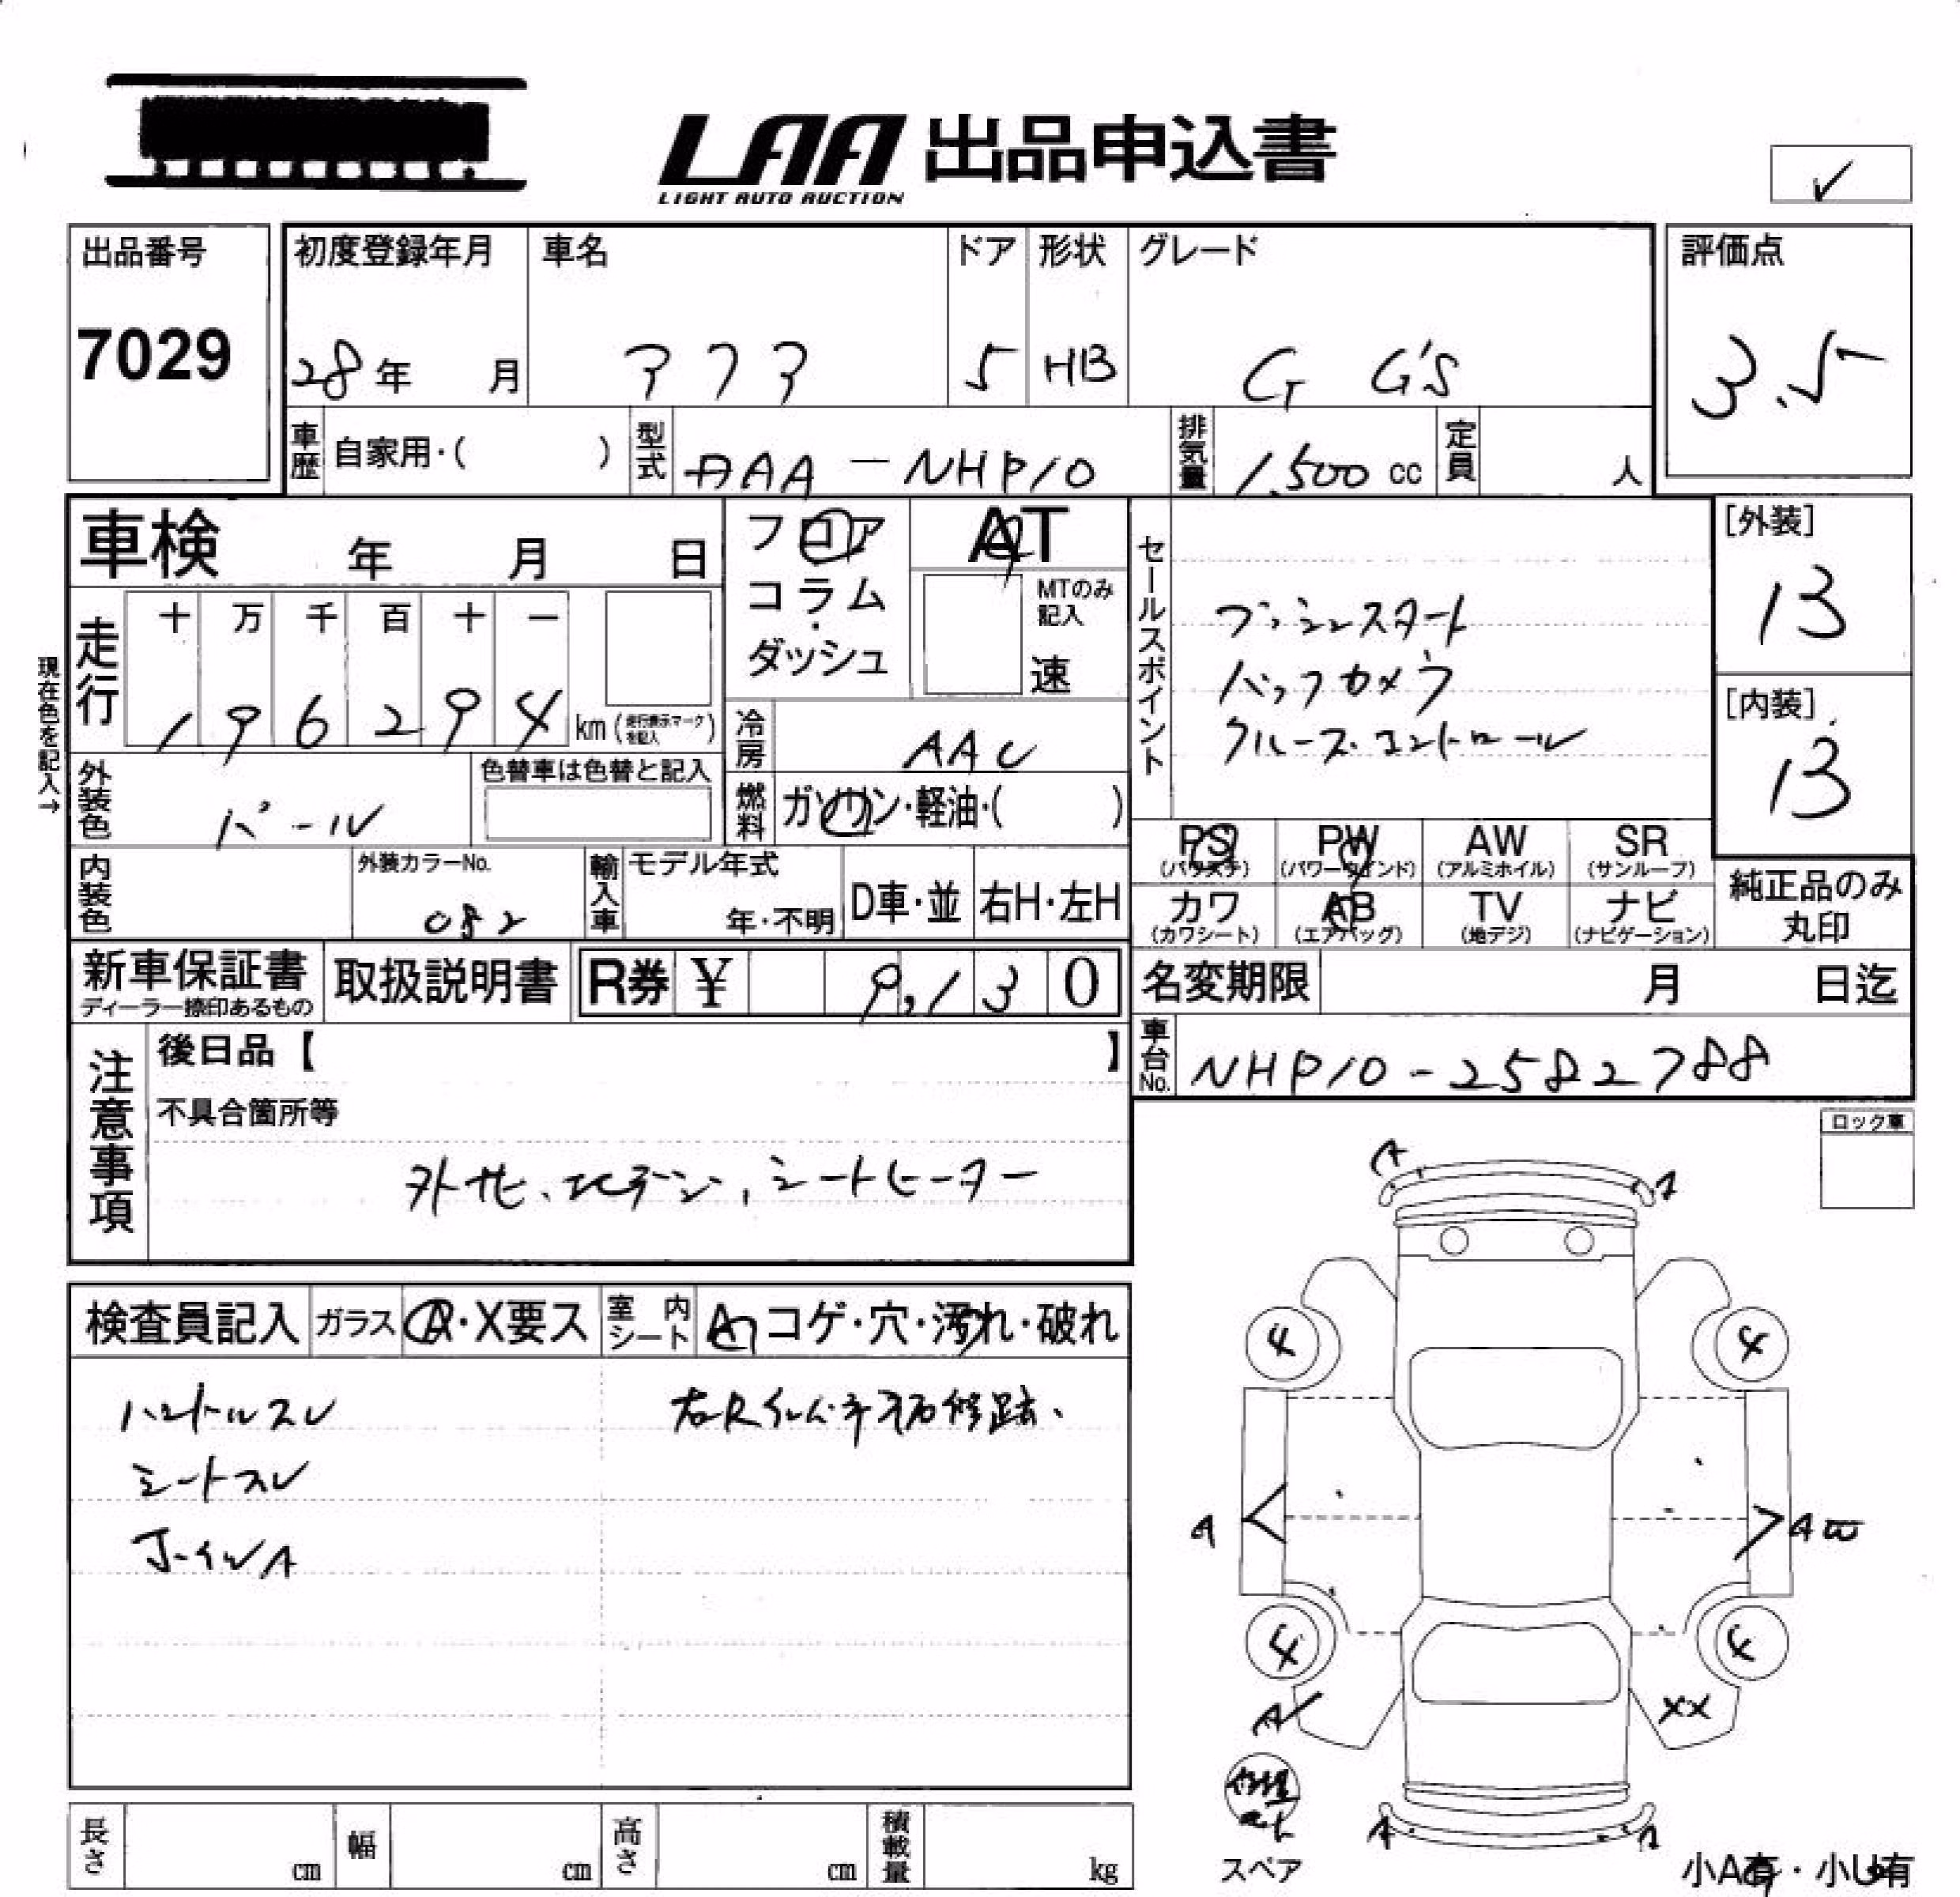 LAA 出品申込書
LIGHT AUTO AUCTION
出品番号
7029
初度登録年月
28年 月
車名
アクア
ドア
5
形状
HB
グレード
G G'S
評価点
3.5
車歴 自家用・( )
型式 DAA-NHP10
排気量 1,500 cc
定員 人
車検 年 月 日
フロア
コラム
・
ダッシュ
AT
MTのみ
記入
速
現在色を記入→
走行
十 万 千 百 十 一
1 9 6 2 9 4 km (走行表示マークを記入)
冷房 AAC
燃料 ガソリン・軽油・( )
外装色 パール
色替車は色替と記入
内装色
外装カラーNo.
082
輸入車
モデル年式
年・不明
D車・並 右H・左H
セールスポイント
プッシュスタート
バックカメラ
クルーズコントロール
[外装]
13
[内装]
13
PS (パワステ)
PW (パワーウインド)
AW (アルミホイル)
SR (サンルーフ)
カワ (カワシート)
AB (エアバッグ)
TV (地デジ)
ナビ (ナビゲーション)
純正品のみ
丸印
新車保証書
ディーラー捺印あるもの
取扱説明書
R券 ¥ 9,130
名変期限 月 日迄
車台No. NHP10-2582788
注意事項
後日品【 】
不具合箇所等
シートヒーター
ロック車
検査員記入 ガラス A・X要ス 室内シート A コゲ・穴・汚れ・破れ
ハンドルスレ
シートスレ
右Rインパネ 修跡、
A
A
4
4
A
A
4
4
A
XX
A
スペア
小A有・小U有
長さ cm
幅 cm
高さ cm
積載量 kg